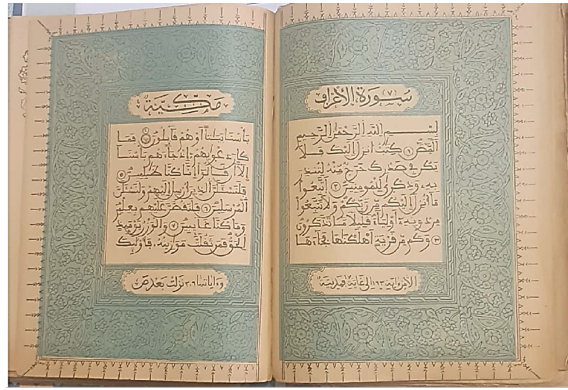 سورة الأعراف (٧)
بسم الله الرحمن الرحيم
المص ١ كتب انزل اليك فلا
يكن في صدرك حرج منه لتنذر
به وذكرى للمومنين ٢ اتبعوا
ما انزل اليكم من ربكم ولا تتبعوا
من دونه أولياء قليلا ما تذكرون
٣ وكم من قرية اهلكنها فجاءها
الا من ءاية ١٦٣ إلى غاية فمدنية
مكية
بأسنا بيتا او هم قايلون ٤ فما
كان دعويهم إذ جاءهم بأسنا
إلا أن قالوا إنا كنا ظلمين ٥
فلنسئلن الذين أرسل إليهم ولنسئلن
المرسلين ٦ فلنقصن عليهم بعلم
وما كنا غايبين ٧ والوزن يومئذ
الحق فمن ثقلت موازينه فأولئك
وءاياتها ٢٠٦ نزلت بعد ص